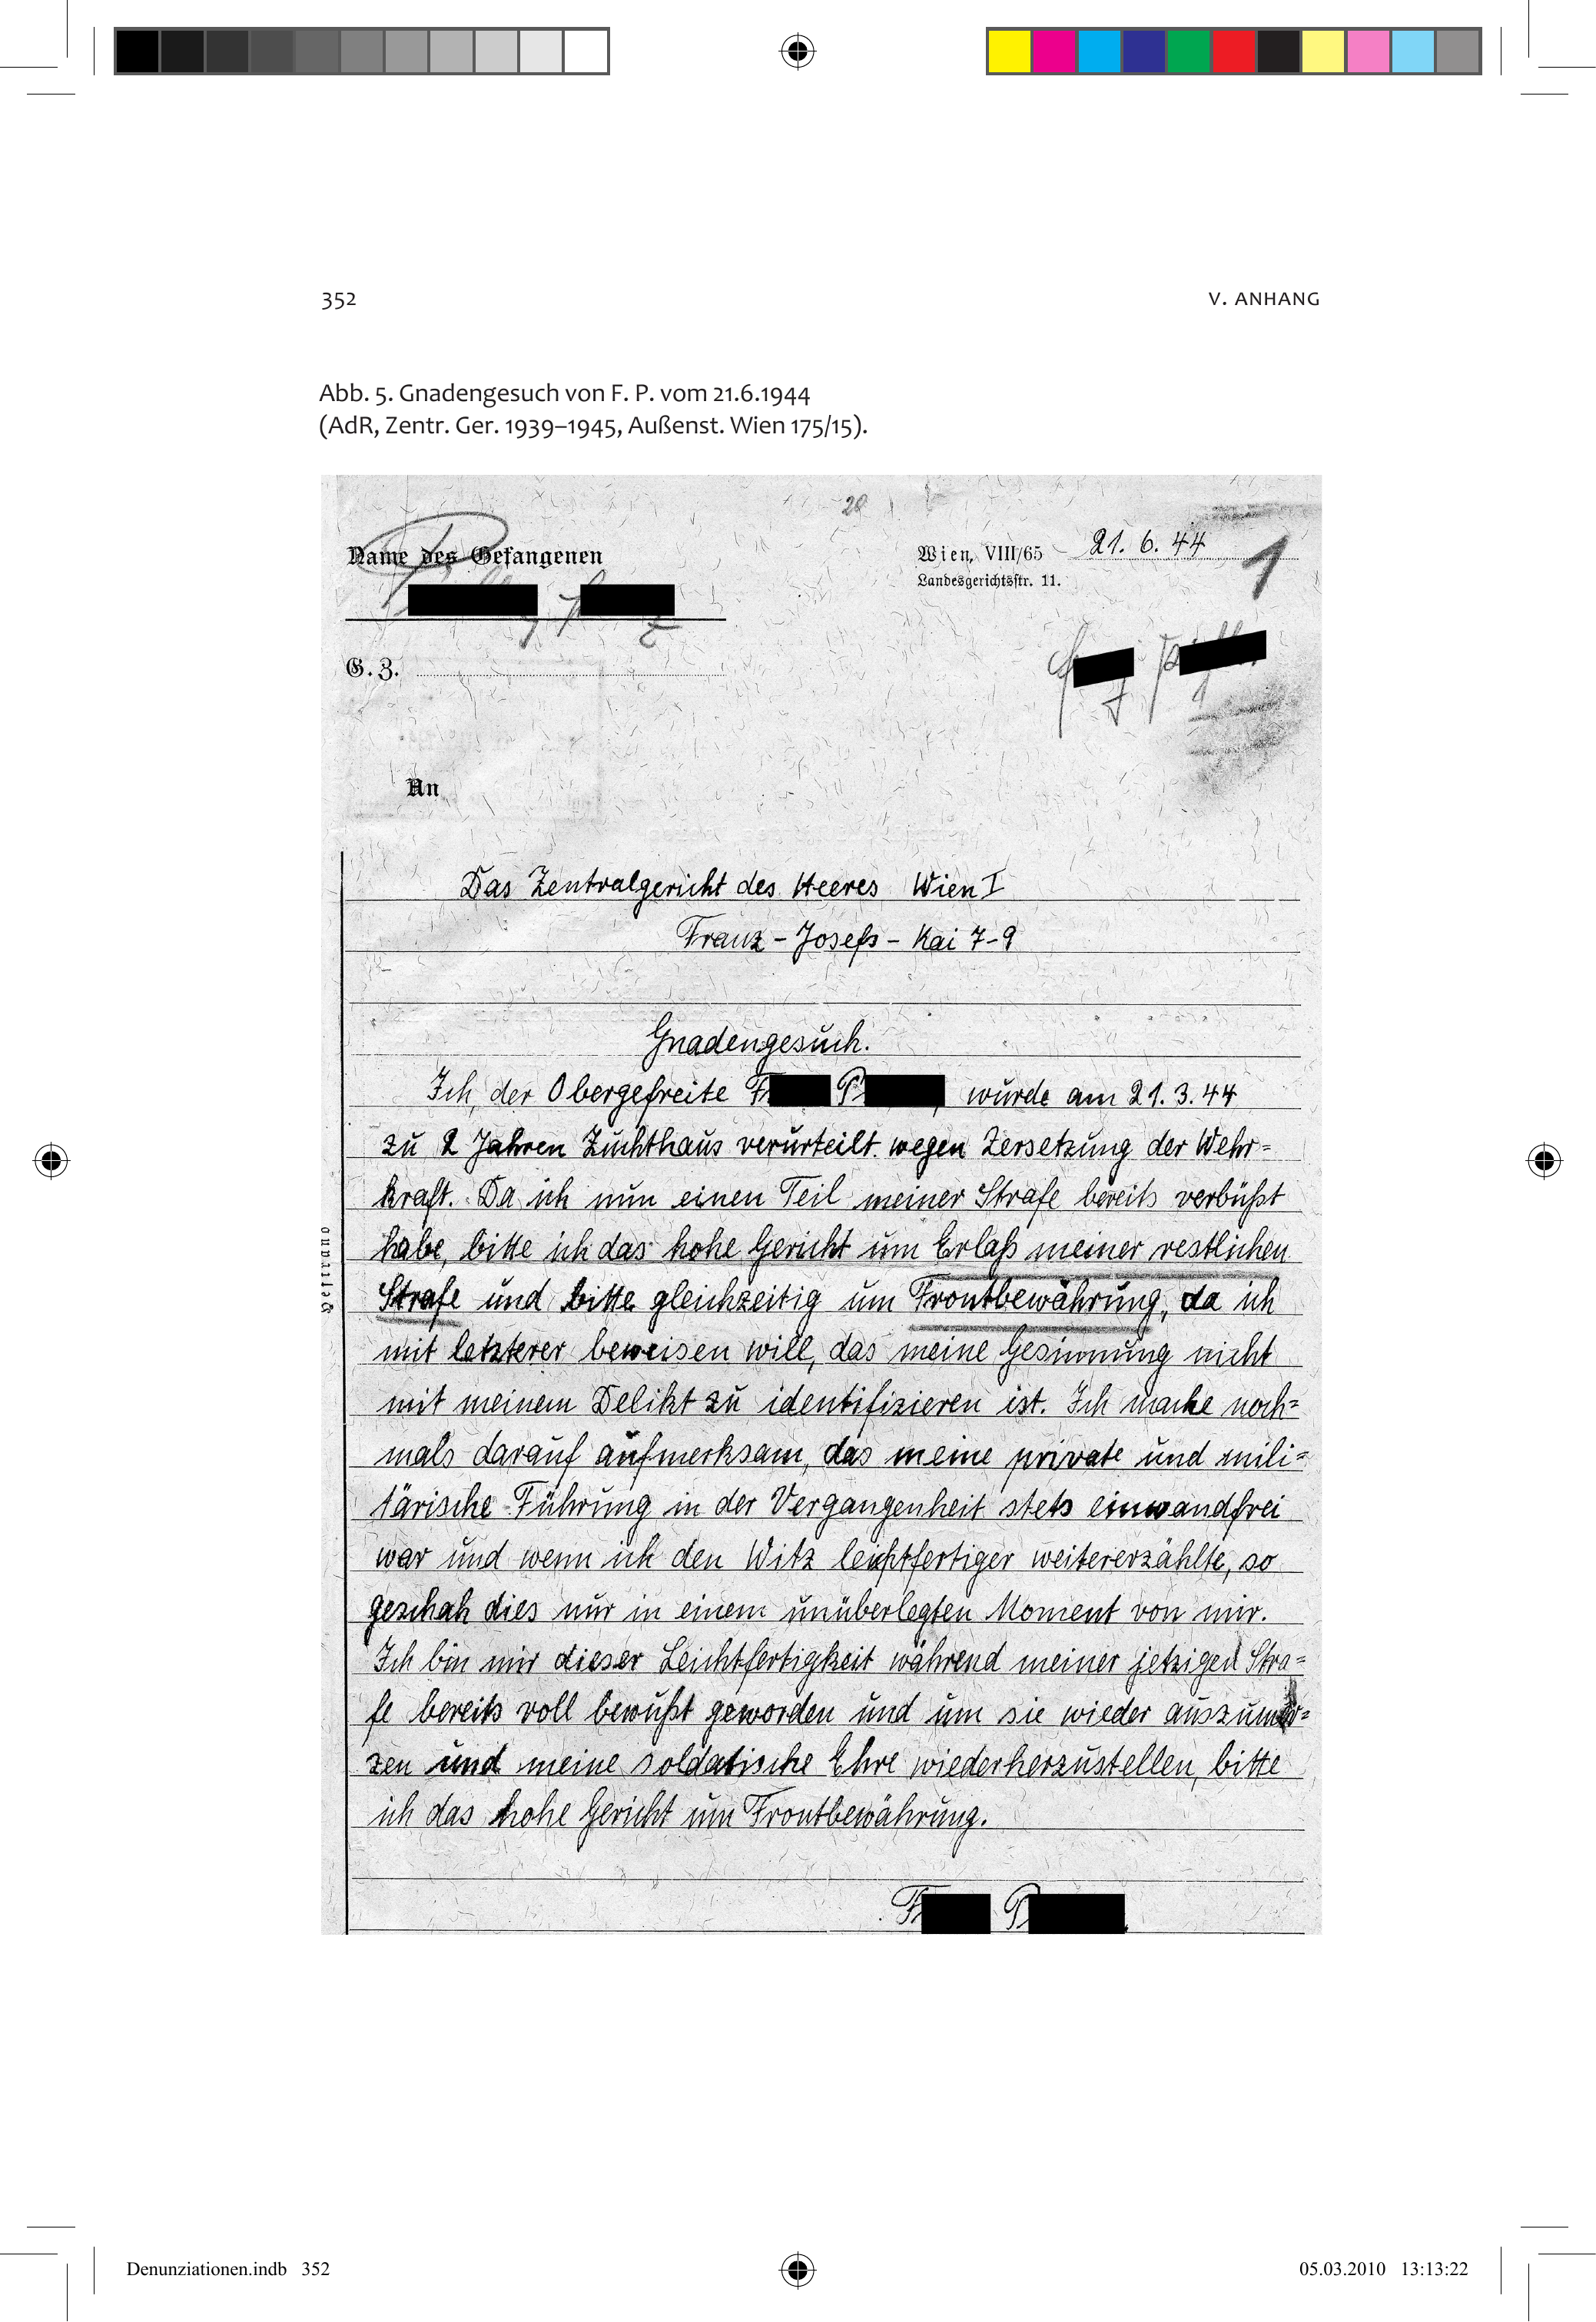 352
V. ANHANG
Abb. 5. Gnadengesuch von F. P. vom 21.6.1944
(AdR, Zentr. Ger. 1939–1945, Außenst. Wien 175/15).
28
Name des Gefangenen
Wien, VIII/65 21. 6. 44
Landesgerichtsstr. 11.
1
G. Z.
An
Das Zentralgericht des Heeres Wien I
Franz-Josefs-Kai 7-9
Gnadengesuch.
Ich, der Obergefreite F P wurde am 21. 3. 44
zu 2 Jahren Zuchthaus verurteilt wegen Zersetzung der Wehr=
kraft. Da ich nun einen Teil meiner Strafe bereits verbüßt
habe, bitte ich das hohe Gericht um Erlaß meiner restlichen
Strafe und bitte gleichzeitig um Frontbewährung, da ich
mit letzterer beweisen will, das meine Gesinnung nicht
mit meinem Delikt zu identifizieren ist. Ich mache noch=
mals darauf aufmerksam, das meine private und mili=
tärische Führung in der Vergangenheit stets einwandfrei
war und wenn ich den Witz leichtfertiger weitererzählte, so
geschah dies nur in einem unüberlegten Moment von mir.
Ich bin mir dieser Leichtfertigkeit während meiner jetzigen Stra=
fe bereits voll bewußt geworden und um sie wieder auszumer=
zen und meine soldatische Ehre wiederherzustellen, bitte
ich das hohe Gericht um Frontbewährung.
F P
Denunziationen.indb 352
05.03.2010 13:13:22